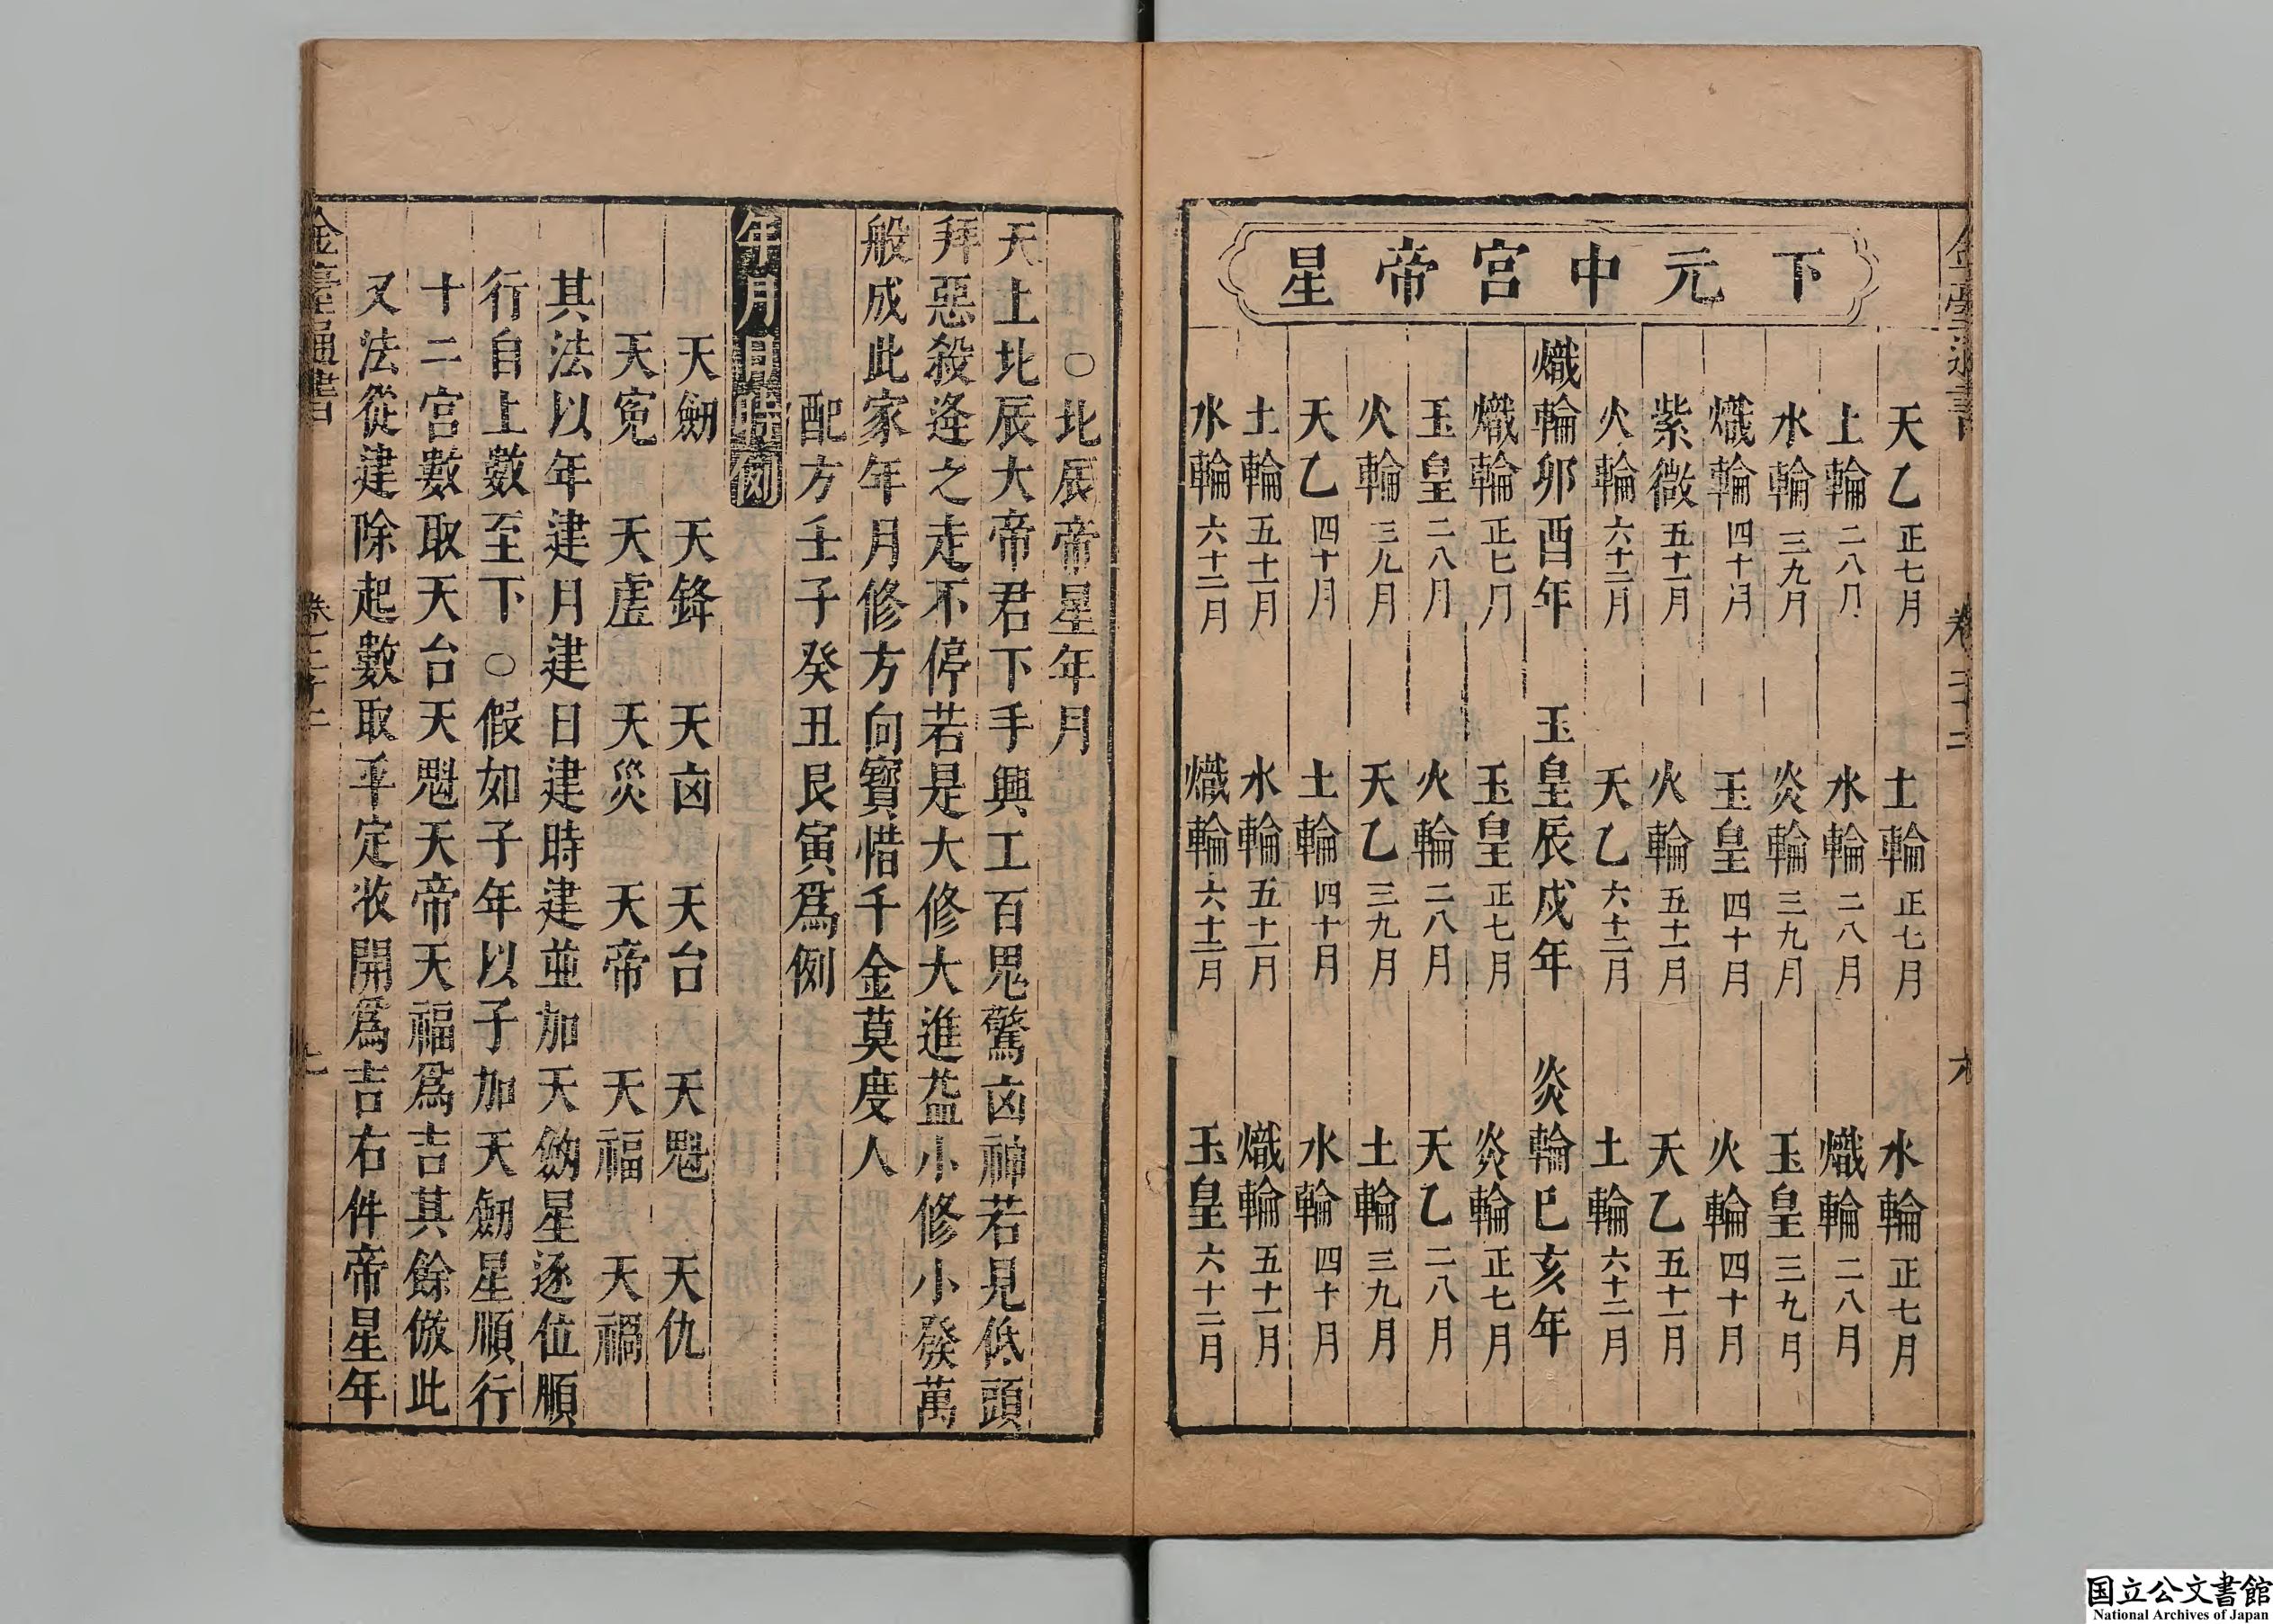 下元中宮帝星
天乙正七月　土輪正七月　水輪正七月
土輪二八月　水輪二八月　熾輪二八月
水輪三九月　炎輪三九月　玉皇三九月
熾輪四十月　玉皇四十月　火輪四十月
紫微五十一月　火輪五十一月　天乙五十一月
火輪六十二月　天乙六十二月　土輪六十二月
熾輪卯酉年　玉皇辰戌年　炎輪巳亥年
熾輪正七月　玉皇正七月　炎輪正七月
玉皇二八月　火輪二八月　天乙二八月
火輪三九月　天乙三九月　土輪三九月
天乙四十月　土輪四十月　水輪四十月
土輪五十一月　水輪五十一月　熾輪五十一月
水輪六十二月　熾輪六十二月　玉皇六十二月
○北辰帝星年月
天上北辰大帝君下手興工百思驚凶神若見低頭
拜惡殺逢之走不停若是大修大進益小修小發萬
般成此家年月修方向寳惜千金莫度人
配方壬子癸丑艮寅爲例
年月日時例
天劒　天鋒　天凶　天台　天魁　天仇
天寃　天虚　天災　天帝　天福　天禍
其法以年建月建日建時建並加天劒星逐位順
行自上數至下○假如子年以子加天劒星順行
十二宮數取天台天魁天帝天福爲吉其餘倣此
又法從建除起數取平定收開爲吉右件帝星年
金臺通書　卷二十二
国立公文書館
National Archives of Japan